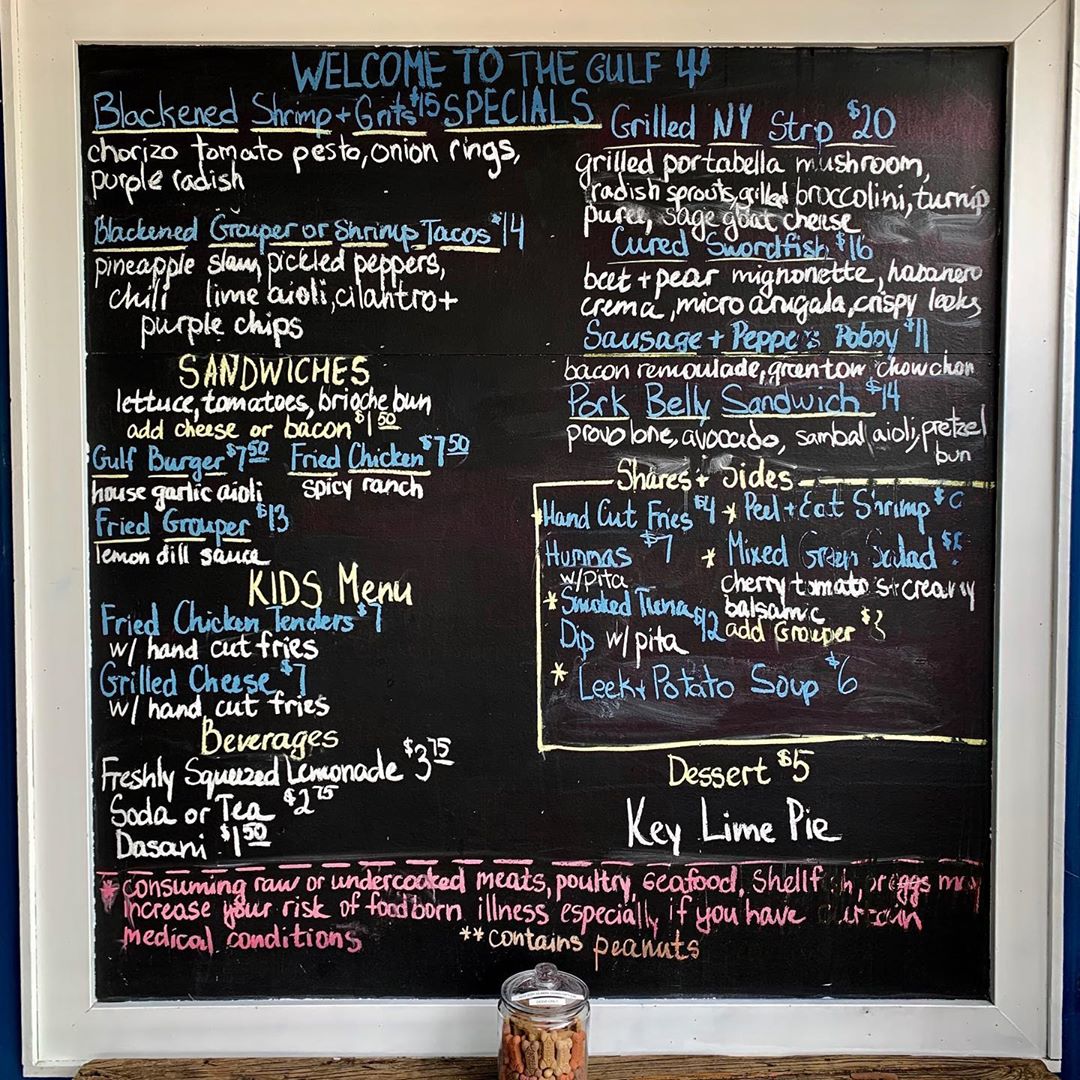 WELCOME TO THE GULF
SPECIALS
Blackened Shrimp + Grits $15
chorizo tomato pesto, onion rings,
purple radish
Blackened Grouper or Shrimp Tacos $14
pineapple slaw, pickled peppers,
chili lime aioli, cilantro +
purple chips
SANDWICHES
lettuce, tomatoes, brioche bun
add cheese or bacon $1.50
Gulf Burger $7.50 Fried Chicken $7.50
house garlic aioli spicy ranch
Fried Grouper $13
lemon dill sauce
KIDS Menu
Fried Chicken Tenders $7
w/ hand cut fries
Grilled Cheese $7
w/ hand cut fries
Beverages
Freshly Squeezed Lemonade $3.75
Soda or Tea $2.75
Dasani $1.50
Grilled NY Strip $20
grilled portabella mushroom,
radish sprouts, grilled broccolini, turnip
puree, sage goat cheese
Cured Swordfish $16
beet + pear mignonette, habanero
crema, micro arugala, crispy leeks
Sausage + Peppers Poboy $11
bacon remoulade, green tom chowchow
Pork Belly Sandwich $14
provolone, avocado, sambal aioli, pretzel
bun
Shares + Sides
*Hand Cut Fries $4
Hummas $7
w/pita
*Smoked Tuna $12
Dip w/ pita
* Peel + Eat Shrimp
* Mixed Green Salad
cherry tomato's + creamy
balsamic
add Grouper
* Leek + Potato Soup $6
Dessert $5
Key Lime Pie
* consuming raw or undercooked meats, poultry, seafood, shellfish, or eggs may
increase your risk of foodborn illness especially if you have
medical conditions **contains peanuts